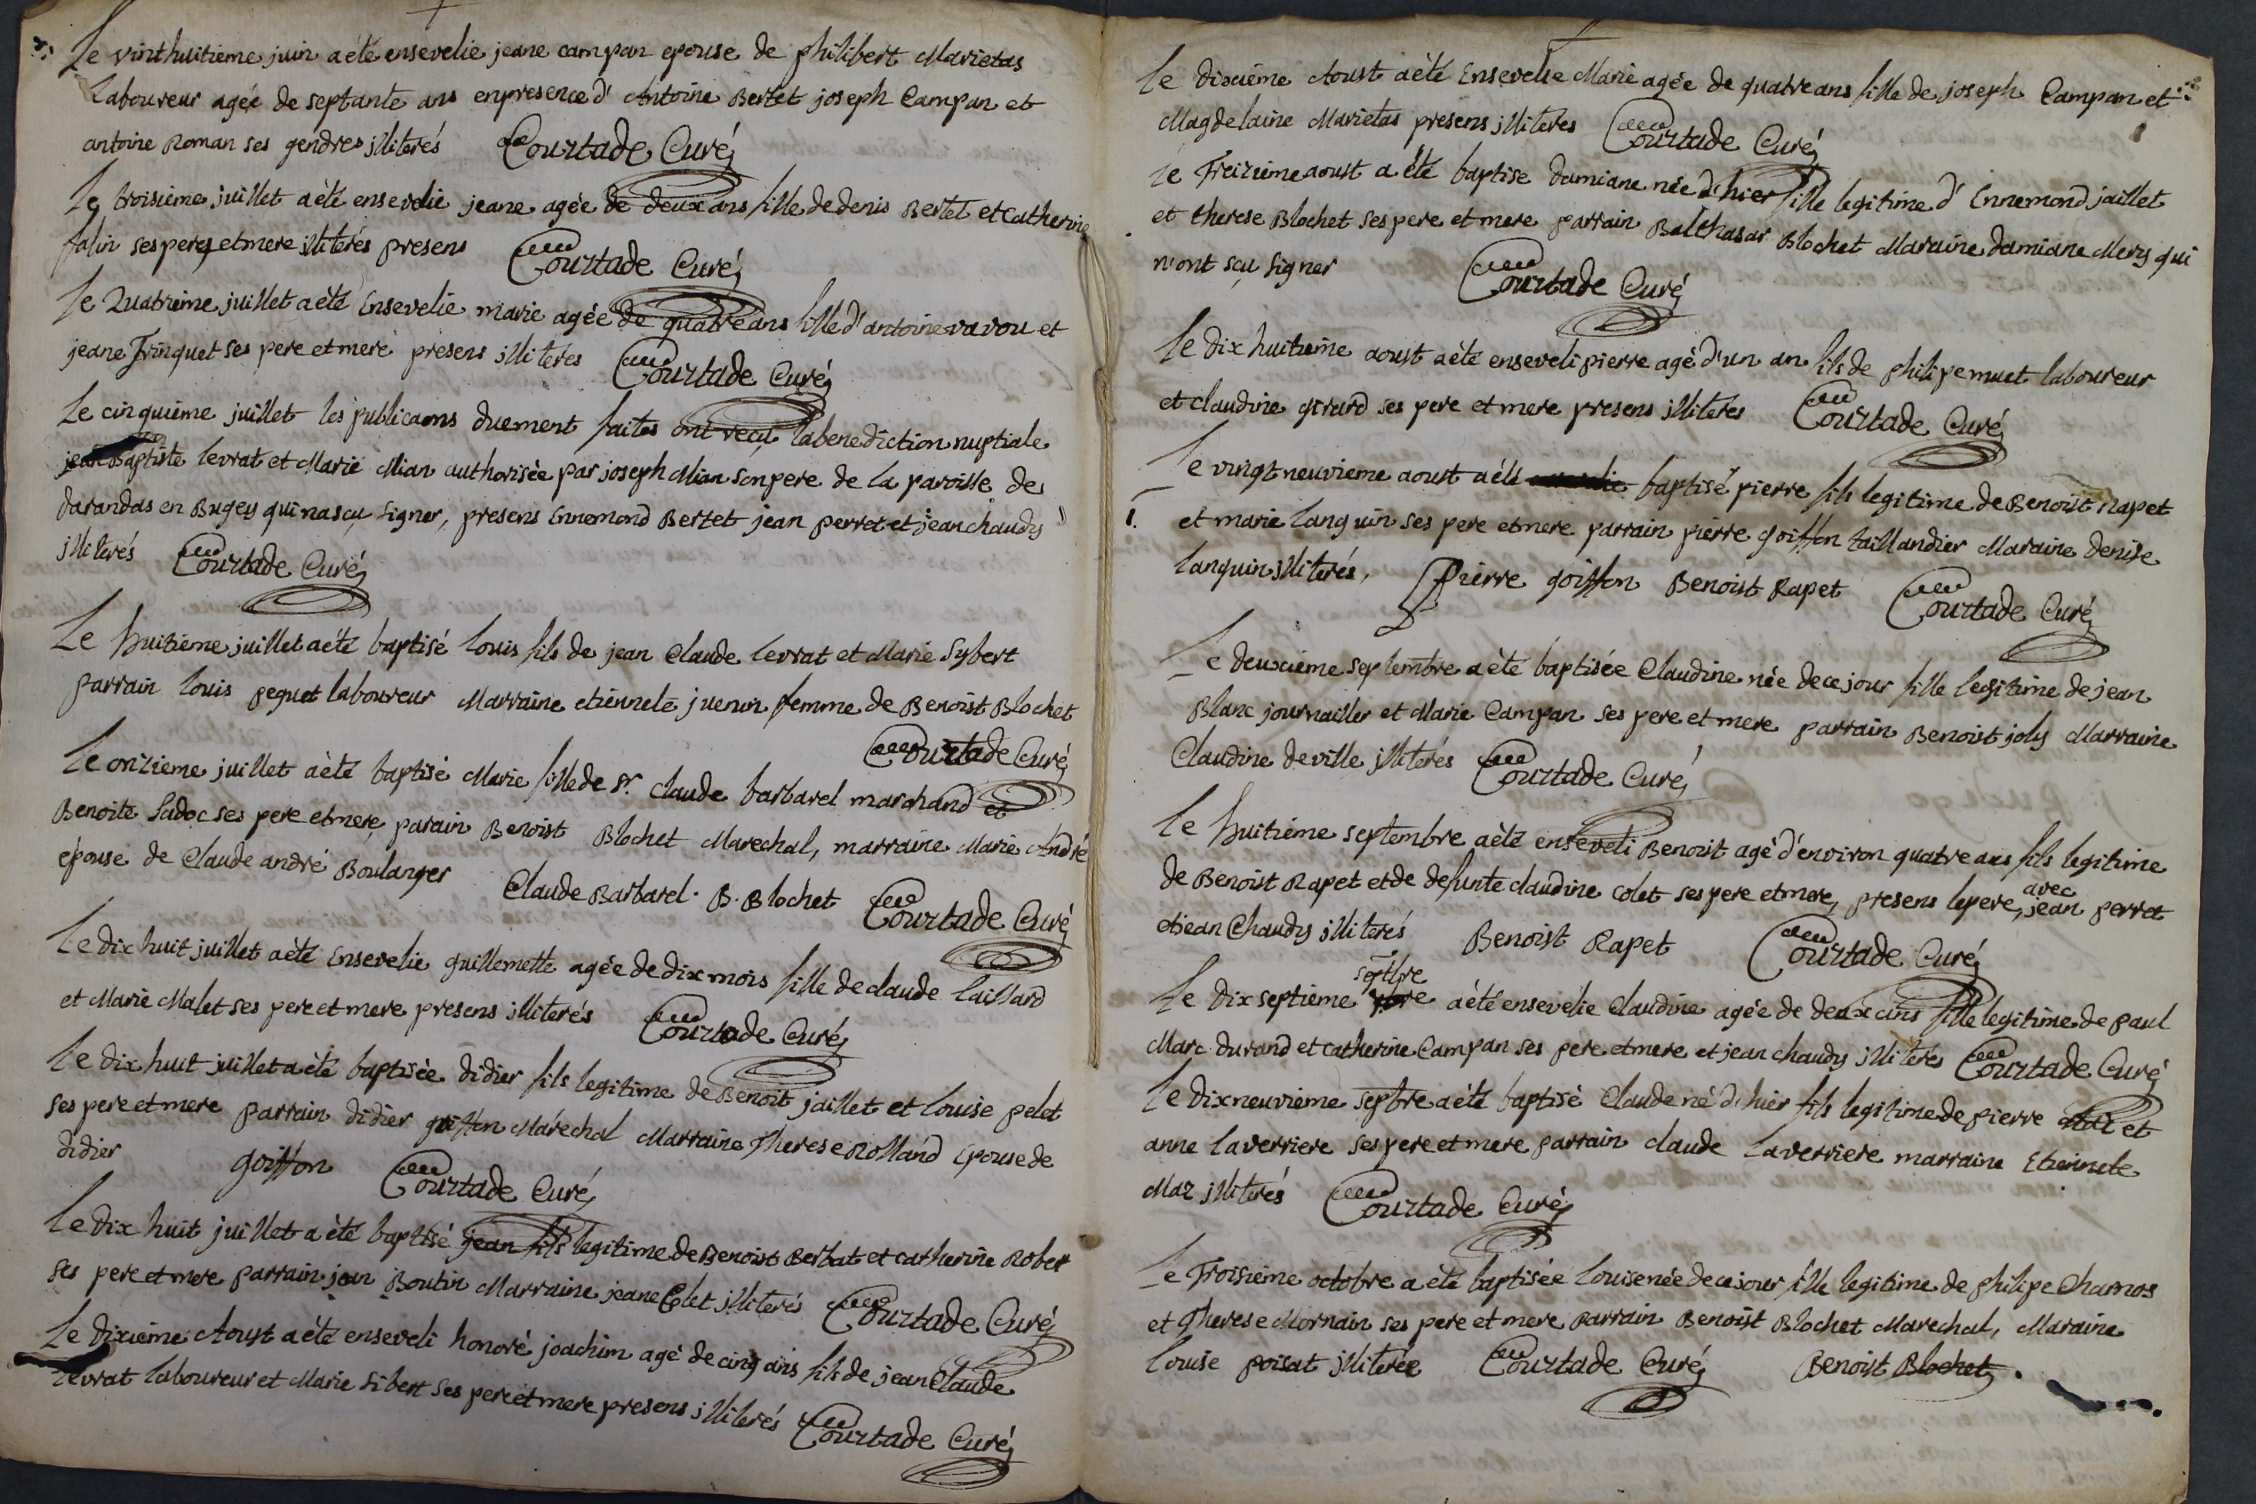 Le vinthuitieme juin a été ensevelie jeane campan epouse de philibert Marietas
Laboureur agée de septante ans enpresence d'Antoine Bertet joseph Campan et
antoine Roman ses gendres illiterés Courtade Curé
Le troisieme juillet a été ensevelie jeane agée de deux ans fille de denis Bertet et Catherine
falin ses peres et mere illiterés presens Courtade Curé
Le Quatrieme juillet a été Ensevelie marie agée de quatre ans fille d'antoine vavou et
jeane Trinquet ses pere et mere presens illiteres Courtade Curé
Le cinquieme juillet les publicaons duement faites ont reçu la benediction nuptiale
jean Baptiste levrat et Marie Mian authorisée par joseph Mian son pere de la paroisse de
darandas en Bugey qui na sçu signer, presens Ennemond Bertet jean perret et jean chaudy
illiterés Courtade Curé
Le huitieme juillet a été baptisé Louis fils de jean Claude levrat et Marie Sybert
parrain louis pequet laboureur Marraine etiennete juenin femme de Benoist Blochet
Courtade Curé
Le onzieme juillet a été baptisé Marie fille de Sr. claude barbarel marchand et
Benoite Sadoc ses pere et mere, parain Benoist Blochet Marechal, marraine Marie André
épouse de Claude andré Boulanger Claude Barbarel. B. Blochet Courtade Curé
Le dix huit juillet a été Ensevelie guillemette agée de dix mois fille de claude laillard
et Marie Malet ses pere et mere presens illiterés Courtade Curé
Le dix huit juillet a été baptisée didier fils legitime de Benoit jaillet et louise pelet
ses pere et mere parrain didier goiffon Maréchal Marraine Therese Rolland Epouse de
didier goiffon Courtade Curé
Le dix huit juillet a été baptisé jean fils legitime de Benoist Berbat et catherine Rober
ses pere et mere parrain jean Boutin Marraine jeane Colet illiterés Courtade Curé
Le dixieme Aoust a été enseveli honoré joachim agé de cinq ans fils de jean Claude
levrat laboureur et Marie Sibert ses pere et mere presens illiterés Courtade Curé
Le dixieme Aoust a été Ensevelie Marie agée de quatre ans fille de joseph Campan et
Magdelaine Marietas presens illiteres Courtade Curé
Le Treizieme aoust a été baptise damiane née d'hier fille legitime d'Ennemond jaillet
et therese Blochet ses pere et mere parrain Balthasar Blochet Maraine damiane Mery qui
n'ont sçu signer Courtade Curé
Le dix huitieme aoust a été enseveli pierre agé d'un an fils de philipe muet laboureur
et claudine girard ses pere et mere presens illiterés Courtade Curé
Le vingt neuvieme aoust a été baptisé pierre fils legitime de Benoist Rapet
et marie languin ses pere et mere parrain pierre goiffon taillandier Maraine denise
languin illiterés, Pierre goiffon Benoist Rapet Courtade Curé
Le deuxieme septembre a été baptisée Claudine née de ce jour fille legitime de jean
Blanc journailler et Marie Campan ses pere et mere parrain Benoist joly Marraine
Claudine deville illiterés Courtade Curé
Le huitieme septembre a été enseveli Benoist agé d'environ quatre ans fils legitime
de Benoist Rapet et de defunte claudine Colet ses pere et mere, presens le pere, avec jean perret
et jean Chaudy illiterés Benoist Rapet Courtade Curé
Le dix septieme septbre a été ensevelie Claudine agée de deux ans fille legitime de paul
Marc durand et catherine Campan ses pere et mere et jean chaudy illiterés Courtade Curé
Le dix neuvieme septbre a été baptisé Claude né d'hier fils legitime de pierre et
anne laverriere ses pere et mere parrain claude laverriere marraine Etiennete
Maz illiterés Courtade Curé
Le Troisieme octobre a été baptisée louise née de ce jour fille legitime de philipe Charnos
et Therese Mornain ses pere et mere parrain Benoist Blochet Marechal, Maraine
louise poisat illiterée Courtade Curé Benoist Blochet.